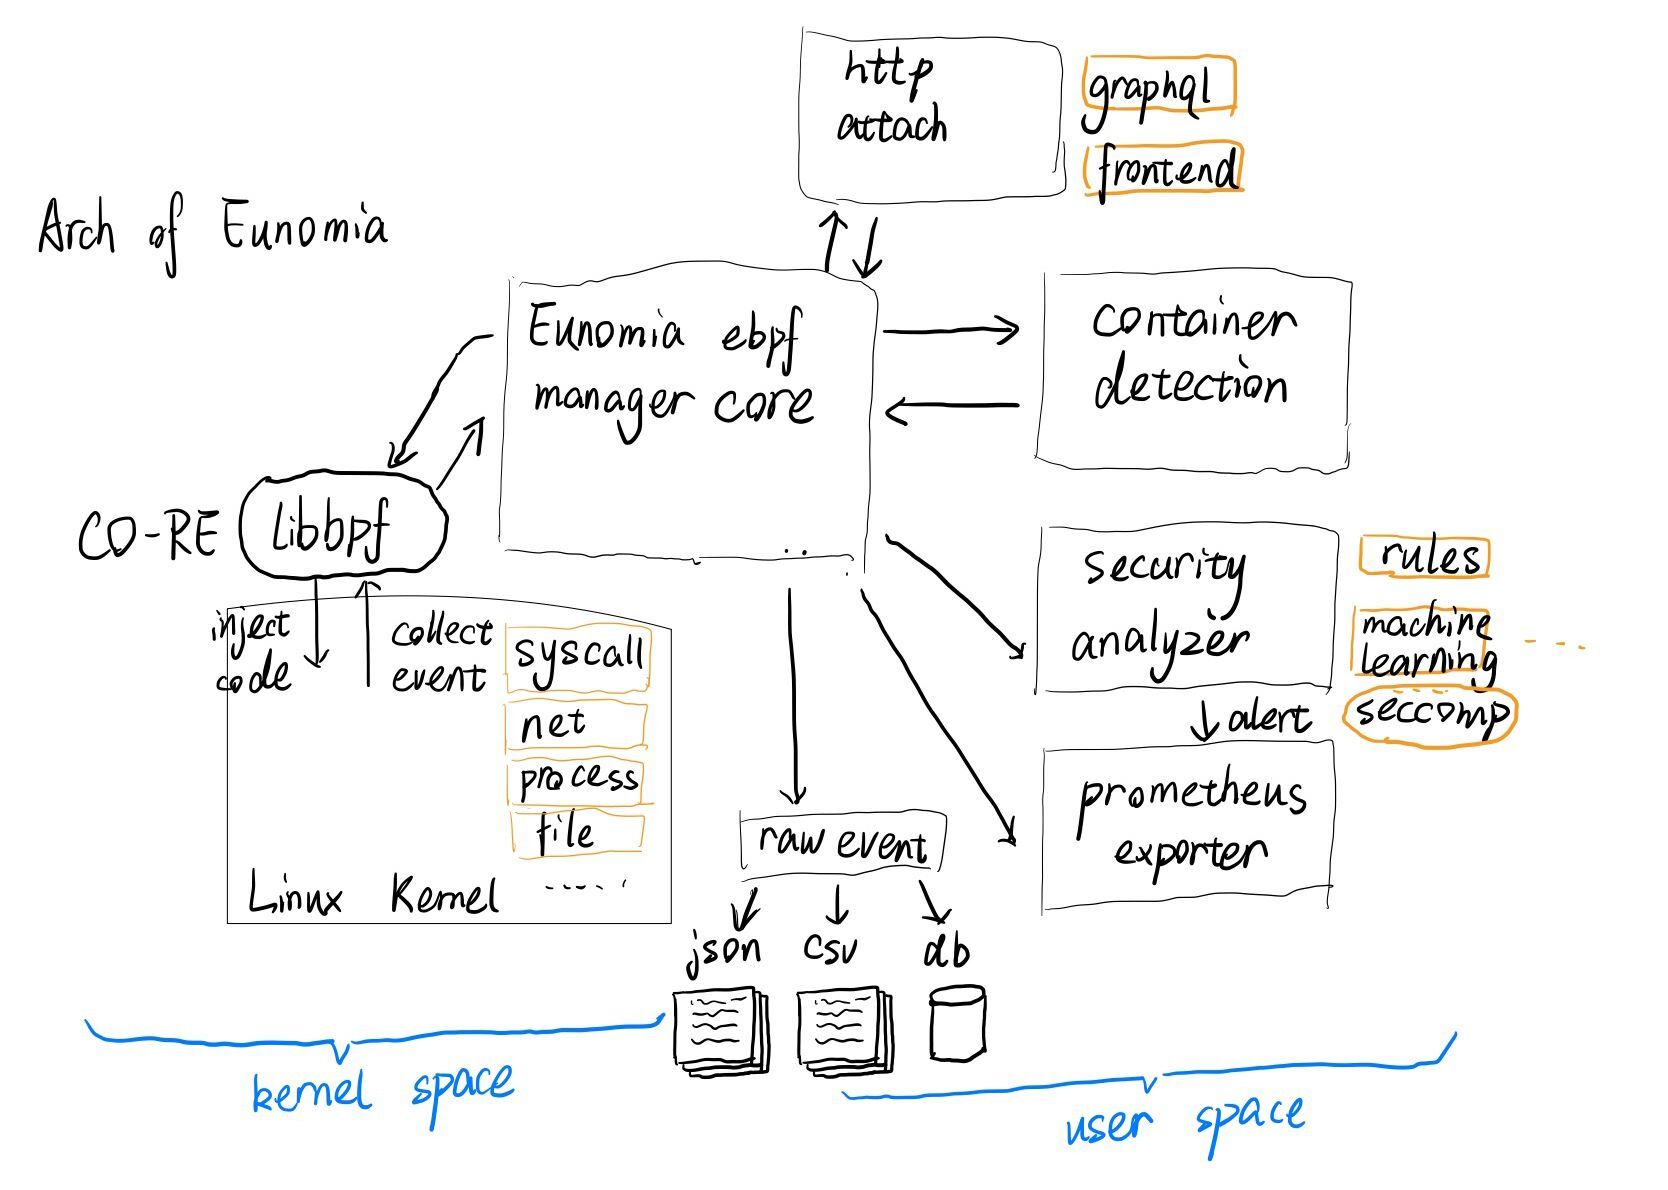 http
attach
graphql
frontend
Arch of Eunomia
Eunomia ebpf
manager core
container
detection
CO-RE
libbpf
inject
code
collect
event
syscall
net
process
file
.....
Linux Kernel
security
analyzer
rules
machine
learning
seccomp
alert
prometheus
exporter
raw event
json
csv
db
kernel space
user space